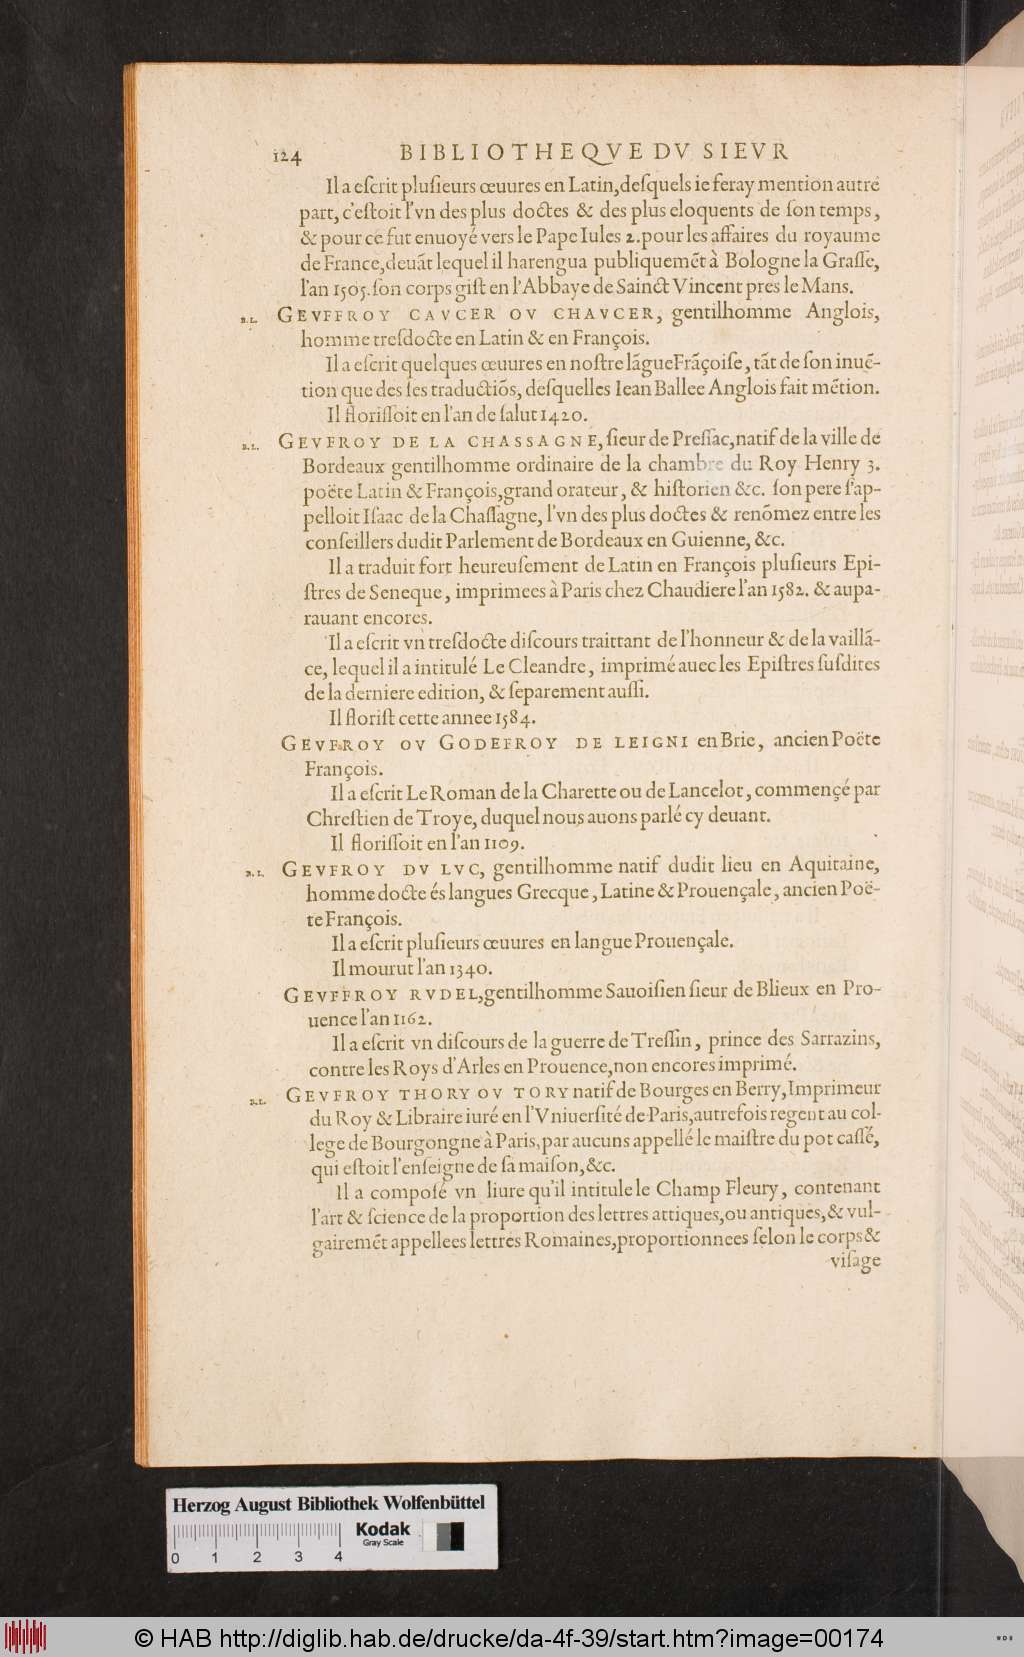 124 BIBLIOTHEQVE DV SIEVR
Il a eſcrit pluſieurs œuures en Latin, deſquels ie feray mention autre
part, c'eſtoit l'vn des plus doctes & des plus eloquents de ſon temps,
& pour ce fut enuoyé vers le Pape Iules 2. pour les affaires du royaume
de France, deuāt lequel il harengua publiquemēt à Bologne la Graſſe,
l'an 1505. ſon corps giſt en l'Abbaye de Sainct Vincent pres le Mans.
B. L. GEVFFROY CAVCER OV CHAVCER, gentilhomme Anglois,
homme treſdocte en Latin & en François.
Il a eſcrit quelques œuures en noſtre lāgue Frāçoiſe, tāt de ſon inuē-
tion que des ſes traductiōs, deſquelles Iean Ballee Anglois fait mētion.
Il floriſſoit en l'an de ſalut 1420.
B. L. GEVFROY DE LA CHASSAGNE, ſieur de Preſſac, natif de la ville de
Bordeaux gentilhomme ordinaire de la chambre du Roy Henry 3.
poëte Latin & François, grand orateur, & hiſtorien &c. ſon pere ſ'ap-
pelloit Iſaac de la Chaſſagne, l'vn des plus doctes & renōmez entre les
conſeillers dudit Parlement de Bordeaux en Guienne, &c.
Il a traduit fort heureuſement de Latin en François pluſieurs Epi-
ſtres de Seneque, imprimees à Paris chez Chaudiere l'an 1582. & aupa-
rauant encores.
Il a eſcrit vn treſdocte diſcours traittant de l'honneur & de la vaillā-
ce, lequel il a intitulé Le Cleandre, imprimé auec les Epiſtres ſuſdites
de la derniere edition, & ſeparement auſſi.
Il floriſt cette annee 1584.
GEVFROY OV GODEFROY DE LEIGNI en Brie, ancien Poëte
François.
Il a eſcrit Le Roman de la Charette ou de Lancelot, commençé par
Chreſtien de Troye, duquel nous auons parlé cy deuant.
Il floriſſoit en l'an 1109.
B. L. GEVFROY DV LVC, gentilhomme natif dudit lieu en Aquitaine,
homme docte és langues Grecque, Latine & Prouençale, ancien Poë-
te François.
Il a eſcrit pluſieurs œuures en langue Prouençale.
Il mourut l'an 1340.
GEVFFROY RVDEL, gentilhomme Sauoiſien ſieur de Blieux en Pro-
uence l'an 1162.
Il a eſcrit vn diſcours de la guerre de Treſſin, prince des Sarrazins,
contre les Roys d'Arles en Prouence, non encores imprimé.
B. L. GEVFROY THORY OV TORY natif de Bourges en Berry, Imprimeur
du Roy & Libraire iuré en l'Vniuerſité de Paris, autrefois regent au col-
lege de Bourgongne à Paris, par aucuns appellé le maiſtre du pot caſſé,
qui eſtoit l'enſeigne de ſa maiſon, &c.
Il a compoſé vn liure qu'il intitule le Champ Fleury, contenant
l'art & ſcience de la proportion des lettres attiques, ou antiques, & vul-
gairemēt appellees lettres Romaines, proportionnees ſelon le corps &
viſage
Herzog August Bibliothek Wolfenbüttel
Kodak
Gray Scale
0 1 2 3 4
© HAB http://diglib.hab.de/drucke/da-4f-39/start.htm?image=00174